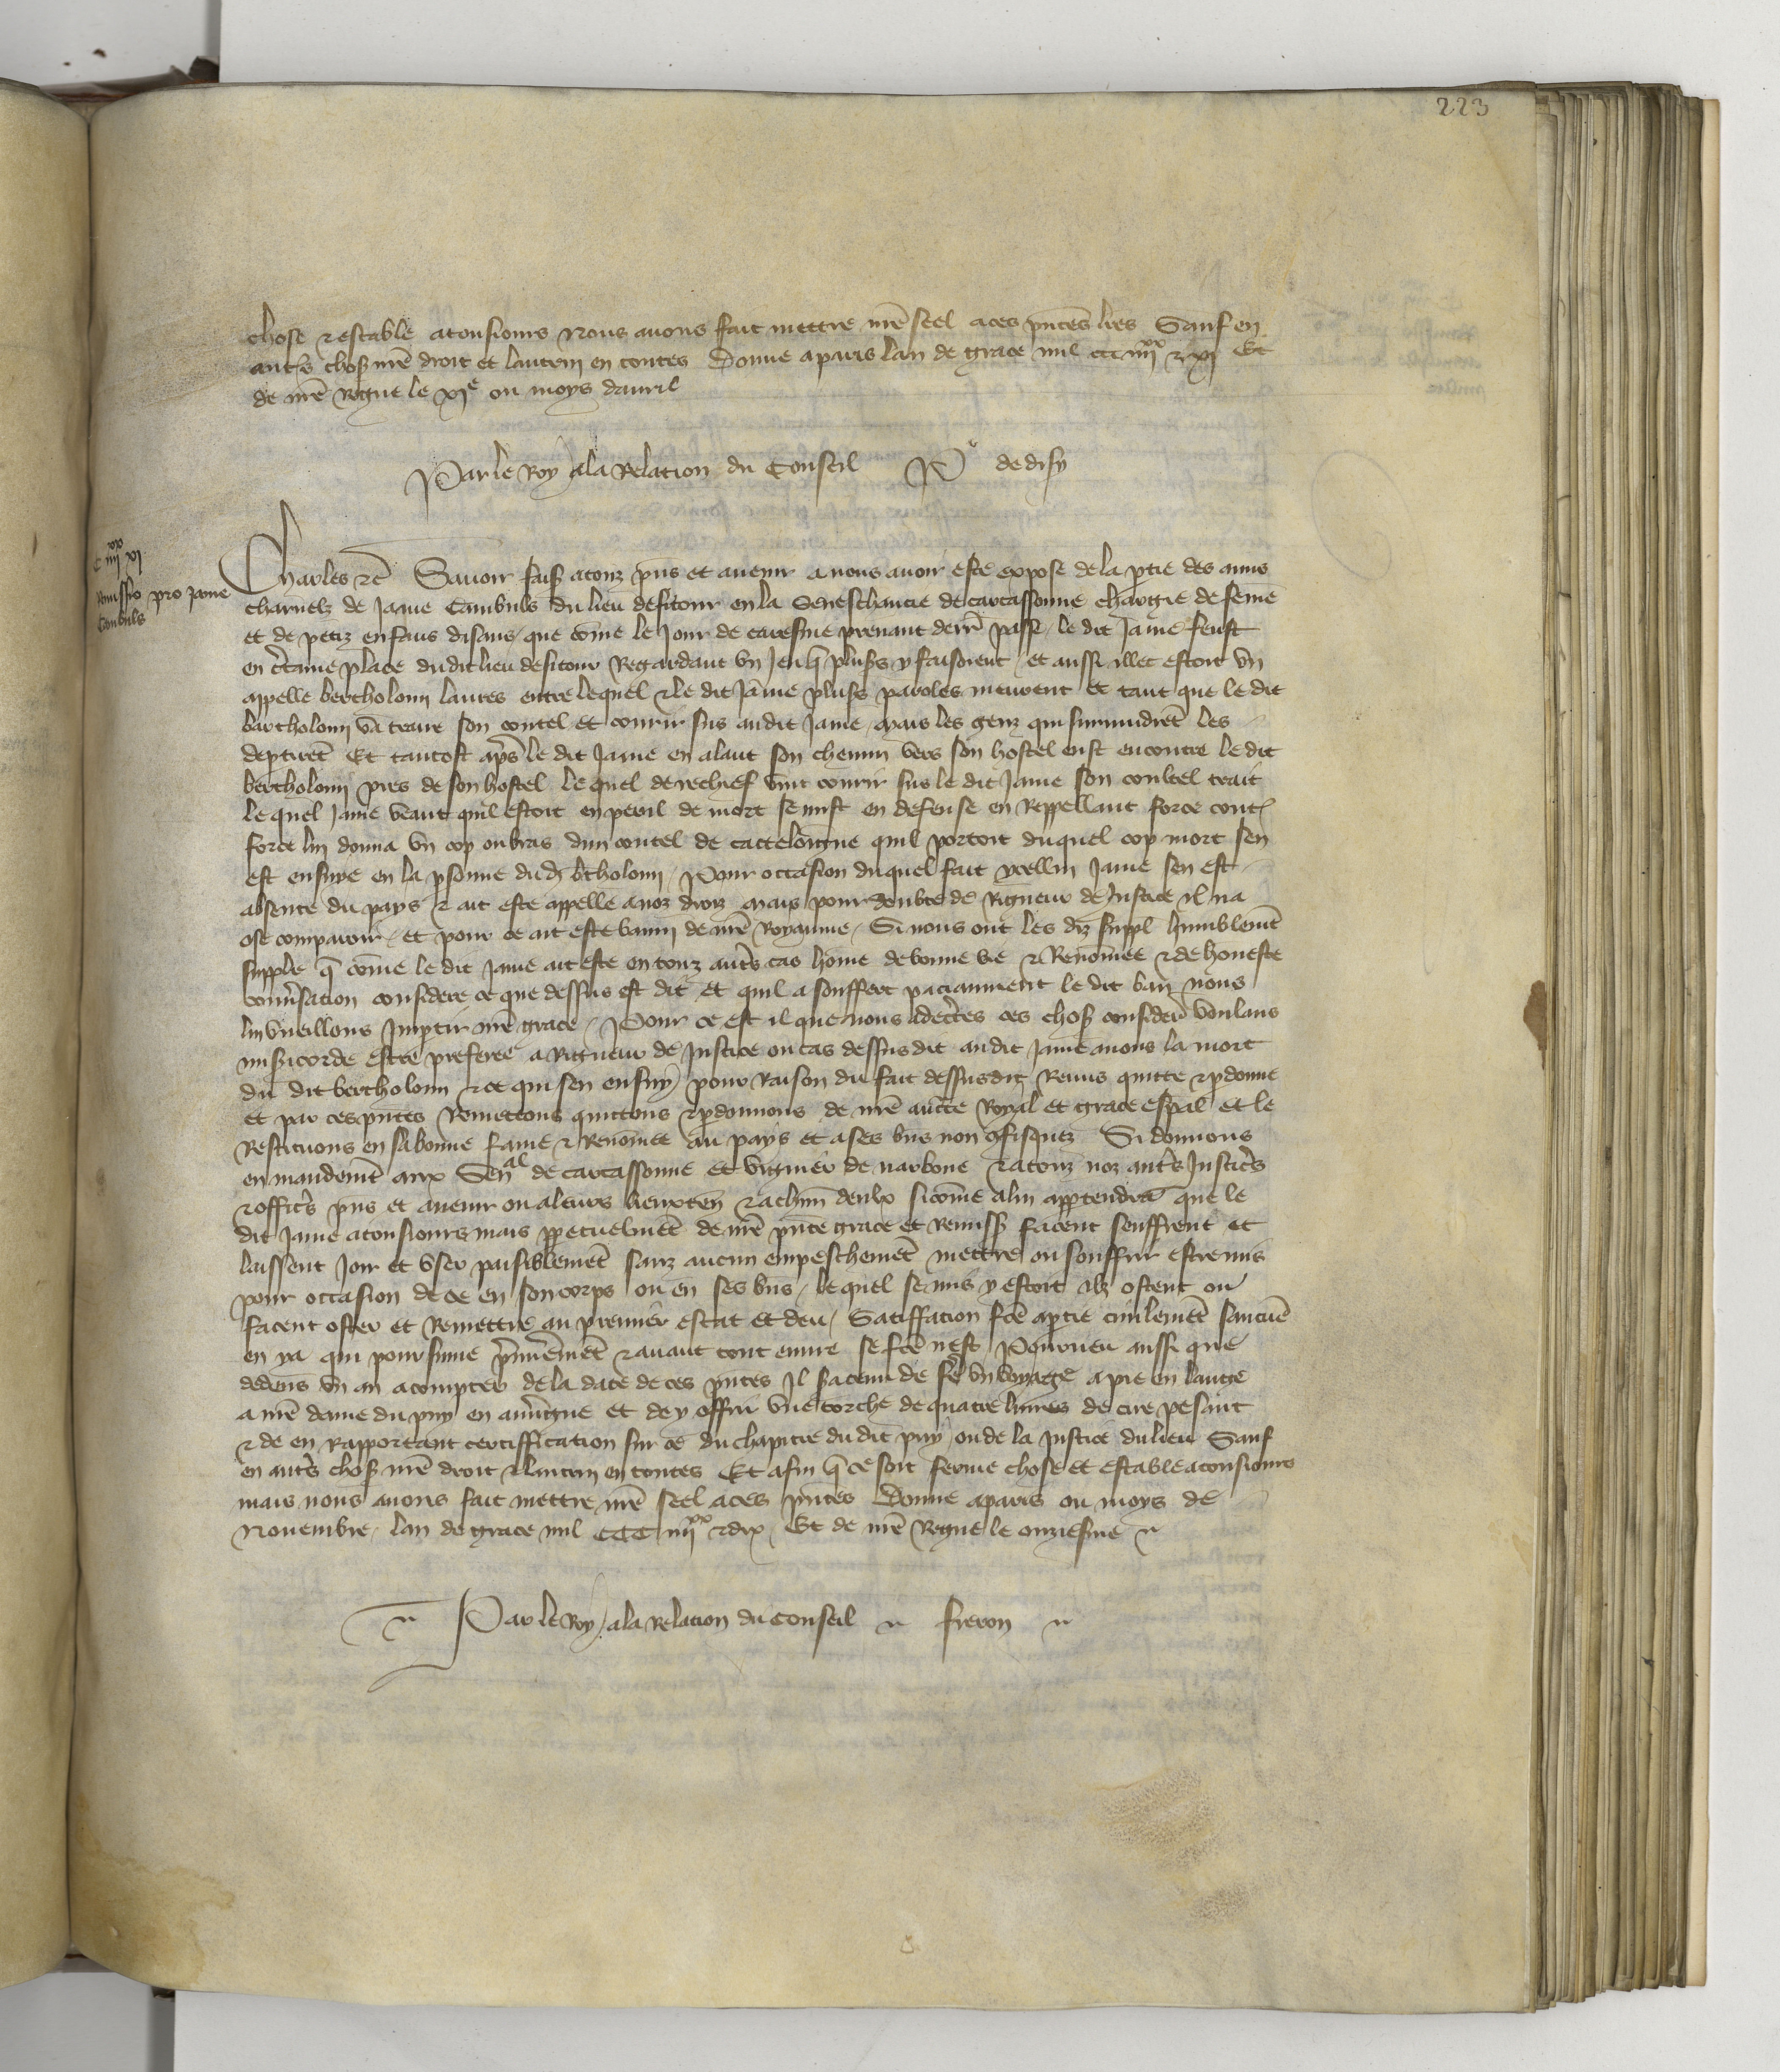 223
chose & estable a tousiours Nous auons fait mettre nr̃e seel a ces pñtes lr̃es Sauf en
autr̃s chos̃ nr̃e droit et lautruy en toutes Donne a paris lan de grace mil ccc iiijxx & xj Et
de nr̃e regne le xje ou moys dauril
Par le Roy a la Relation du Conseil P de disy
C iiijxx xj
Remissio pro Jame
Cambuls
Charles &c̃ Sauoir fais̃ a touz pñs et auenir a nous auoir este expose de la ptie des amis
charnelz de Jame Cambuls du lieu de sitour en la Seneschaucie de carcassonne chargie de fem̃e
et de petiz enfans disans que com̃e le Jour de caresme prenant derr̃ passe le dit Jame feust
en c̃taine place du dit lieu de sitour Regardant vn Jeu q̃ plus̃s y faisoient et aussi illec estoit vn
appelle bertholomi laures entre lequel & le dit Jame plus̃s paroles meurent et tant que le dit
bartholomi va traire son coutel et courir sus au dit Jame mais les genz qui suruindrẽt les
deptirẽt Et tantost ap̃s le dit Jame en alant son chemin vers son hostel eust encontre le dit
bertholomi pres de son hostel le quel derechief vint courir sus le dit Jame son coultel trait
le quel Jame veant quil estoit en peril de mort se mist en defense en Reppellant force cont̃
force lui donna vn cop ou bras dun coutel de cattelõigne quil portoit du quel cop mort sen
est ensuye en la psonne dud̃ b̃tholomi Pour occasion du quel fait ycellui Jame sen est
absente du pays & ait este appelle a noz droiz mais pour doubte de Rigueur de Justice il na
ose comparoir et pour ce ait este banni de nr̃e Royaume Si nous ont les diz suppl humblemẽt
supplie q̃ com̃e le dit Jame ait este en touz autr̃s cas hom̃e de bonne vie & Renom̃ee & de honeste
conũsation considere ce que dessus est dit et quil a souffert paciamment le dit ban nous
lui vueillons Imptir nr̃e grace Pour ce est il que nous adc̃tes ces chos̃ consider̃ voulans
mis̃icorde estre preferee a Rigueur de Justice ou cas dessus dit au dit Jame auons la mort
du dit bertholomi & ce qui sen ensuy pour Raison du fait dessus dit Remis quitte & pdonne
et par ces pñtes Remettons quittons & pdonnons de nr̃e auct̃e Royal et grace esp̃al et le
Restituons en sa bonne fame & Renom̃ee au pays et a ses bñs non ꝯfisquez Si donnons
en mandemẽt aux Senal de carcassonne et viguier de narbone & a touz noz autr̃s Justic̃s
& offic̃s pñs et auenir ou a leurs lieuxteñ & a chũn deulx si com̃e a lui apptendra que le
dit Jame a tousiours mais ppetuelmẽt de nr̃e pñte grace et Remiss̃ facent seuffrent et
laissent Joir et vser paisiblemẽt sanz aucun empeschemẽt mettre ou souffrir estre mis
pour occasion de ce en son corps ou en ses bñs le quel se mis y estoit ilz ostent ou
facent oster et Remettre au premier estat et deu Satiffacion fc̃e a ptie ciuilemẽt
en ya qui poursuiue p̃mieremẽt & auant tout euure se fc̃e nest Pourueu aussi que
dedens vn an a compter de la date de ces pñtes Il sa tenu de fẽ vn voyage a pie en lange
a nr̃e dame du puy en auũgne et de y offrir vne torche de quatre liures de cire pesant
& de en Rapportant certiffication sur ce du chapitre du dit puy ou de la Justice du lieu Sauf
en autr̃s chos̃ nr̃e droit & lautruy en toutes Et afin q̃ ce soit ferme chose et estable a tousiours
mais nous auons fait mettre nr̃e seel a ces pñtes Donne a paris ou moys de
Nouembre lan de grace mil CCC iiijxx & dix Et de nr̃e Regne le onziesme
Par le Roy a la Relation du Conseil freron